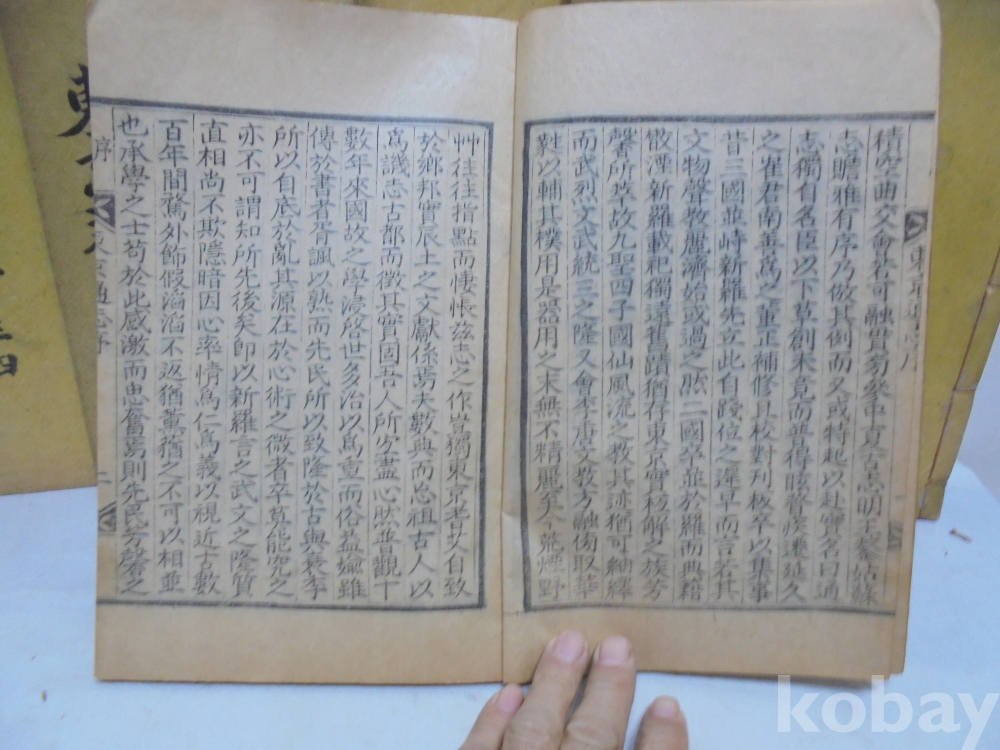 積空曲文會若可融貫
志瞻雅有序乃倣其例而又或特起以赴實名曰通
志獨自名臣以下草創未竟而普得眩瞀疾遷延久
之崔君南善爲之董正補修且校對刊板卒以集事
昔三國並峙新羅先立此自踐位之遲早而言若其
文物聲教麗濟始或過之然二國卒並於羅而典籍
散湮新羅載祀獨遠舊蹟猶存東京實核解之族芳
馨所萃故九聖四子國仙風流之教其迹猶可紬繹
而武烈文武統三之隆又會李唐文教方融傍取華
制以輔其樸用是器用之末無不精麗至今荒煙野
艸往往指點而悽悵玆志之作豈獨東京耆艾自致
於鄉邦實辰土之文獻係焉夫數典而忘祖古人以
爲譏志古都而徵其實固吾人所宜盡心然普觀十
數年來國故之學浸啓世多治以爲重而俗益媮雖
傳於書者胥諷以熟而先民所以致隆於古與衰季
所以自底於亂其源在於心術之微者卒莫能究之
亦不可謂知所先後矣卽以新羅言之武文之隆質
直相尚不欺隱暗因心率情爲仁爲義以視近古數
百年間騖外飾假滔滔不返猶薰蕕之不可以相並
也承學之士苟於此感激而思奮焉則先民芳馨之
序
二
kobay